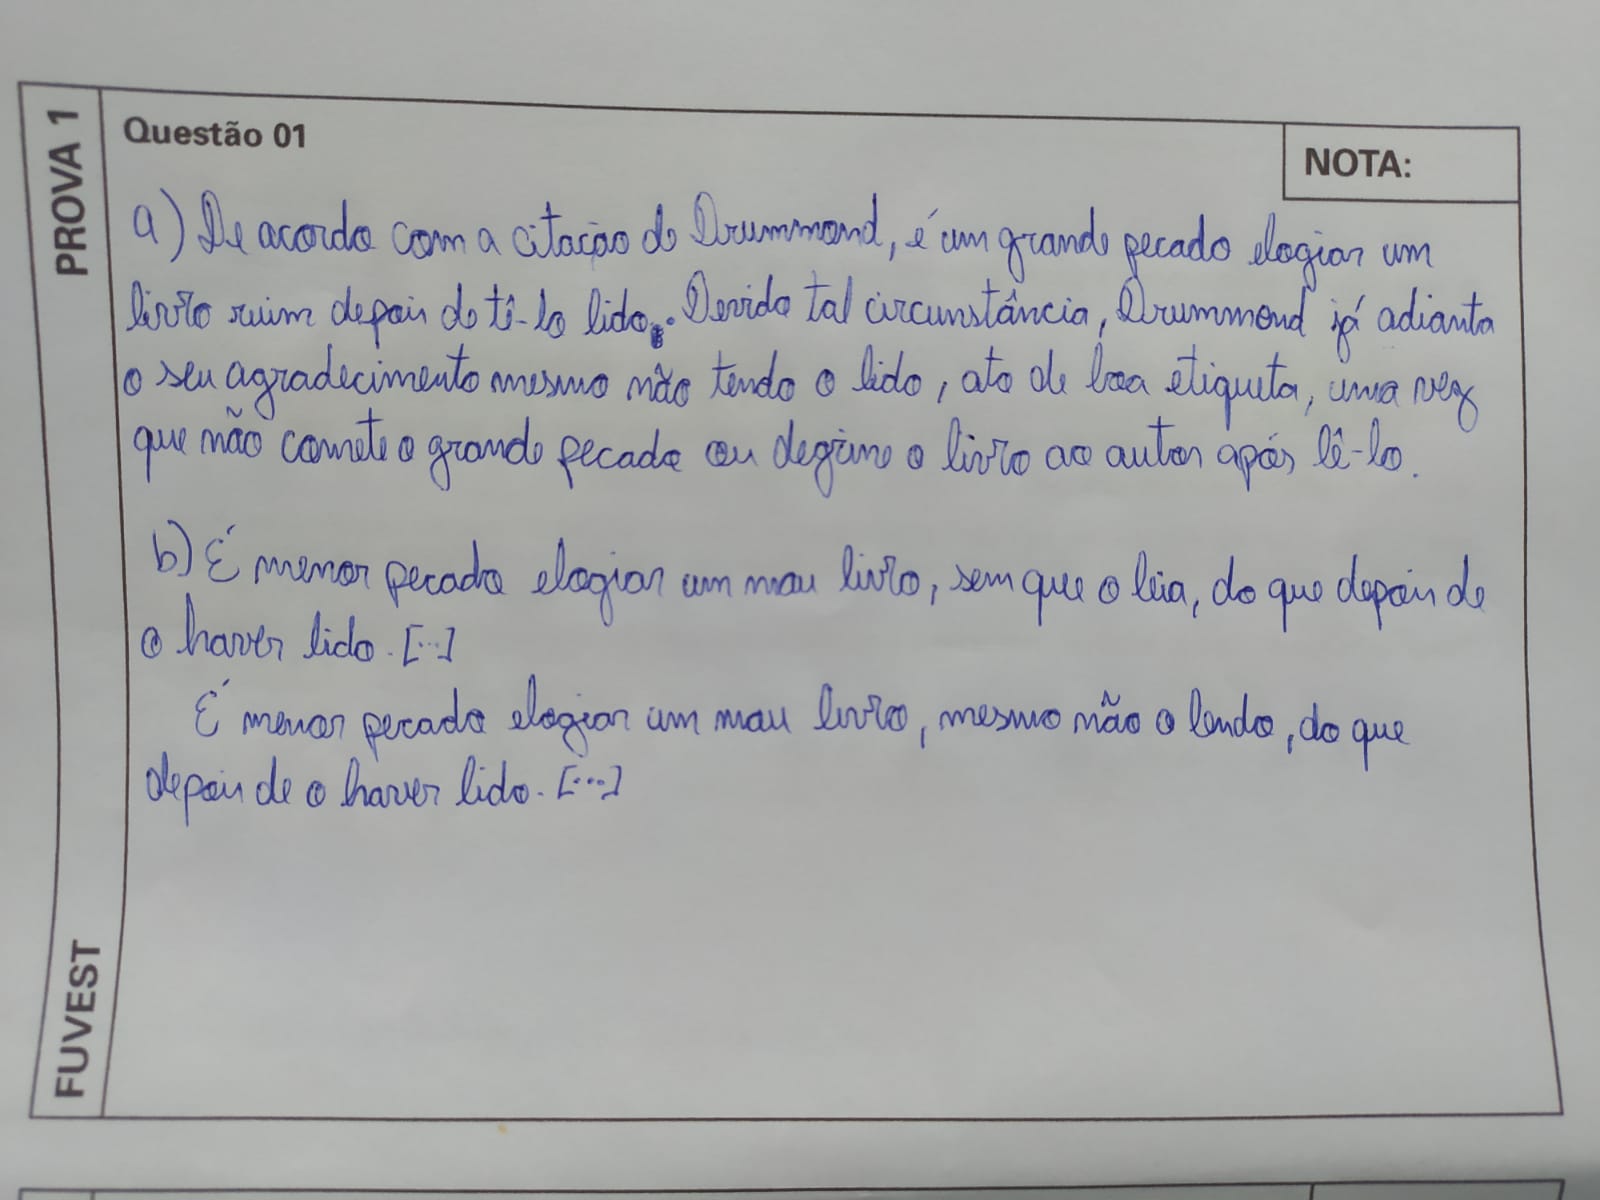 PROVA 1
FUVEST
Questão 01
NOTA:
a) De acordo com a citação de Drummond, é um grande pecado elogiar um
livro ruim depois de tê-lo lido. Devido tal circunstância, Drummond já adianta
o seu agradecimento mesmo não tendo o lido, ato de boa etiqueta, uma vez
que não comete o grande pecado ou degrine o livro ao autor após lê-lo.
b) É menor pecado elogiar um mau livro, sem que o leia, do que depois de
o haver lido. [...]
É menor pecado elogiar um mau livro, mesmo não o lendo, do que
depois de o haver lido. [...]